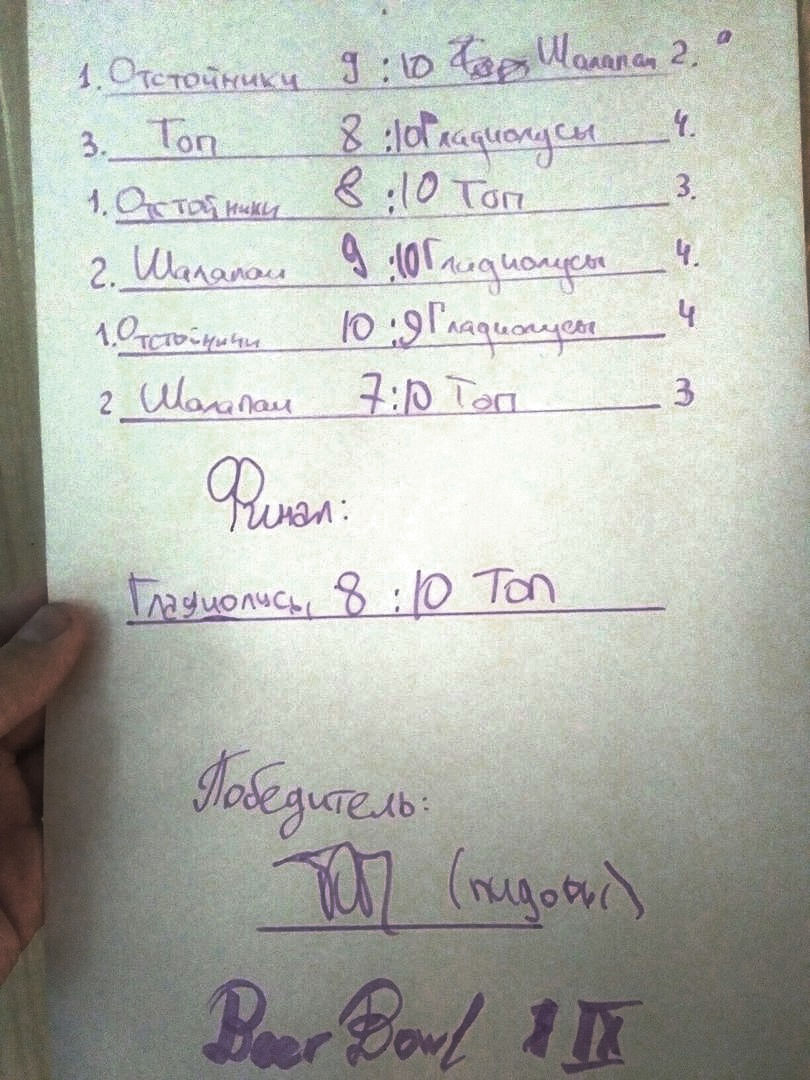 1. Отстойники 9 : 10 Шалапаи 2.
3. Топ 8 :10 Гладиолусы 4.
1. Отстойники 8 :10 Топ 3.
2. Шалапаи 9 :10 Гладиолусы 4.
1. Отстойники 10 :9 Гладиолусы 4
2 Шалапаи 7:10 Топ 3
Финал:
Гладиолусы 8 :10 Топ
Победитель:
ТОП
Beer Bowl IX